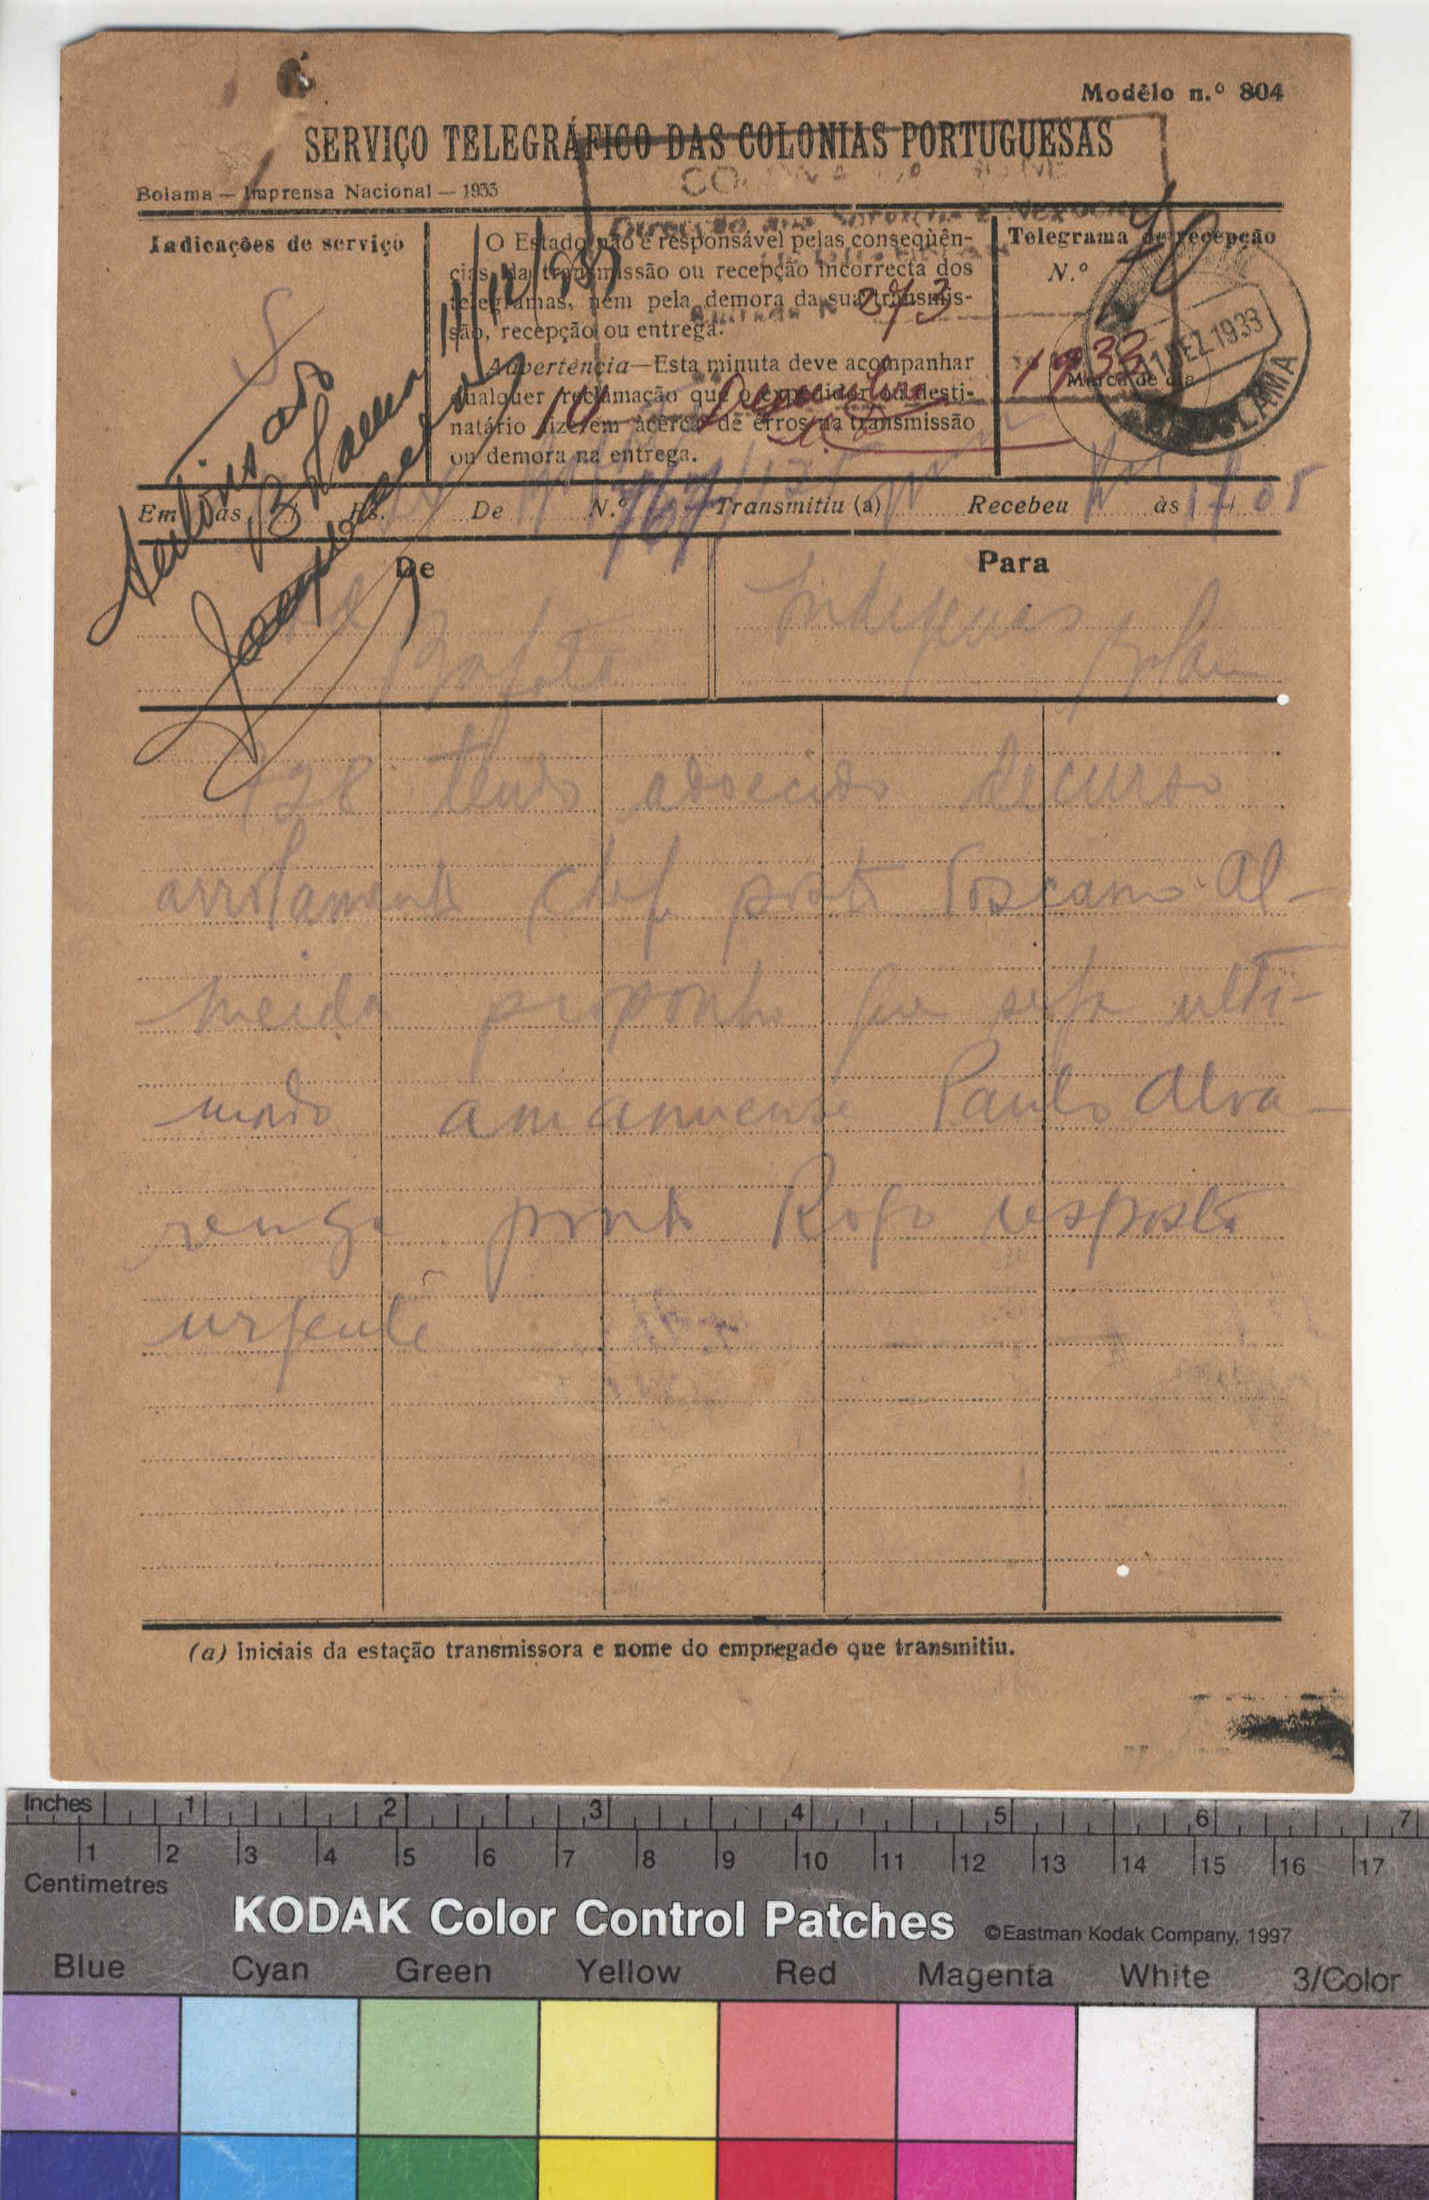 Modêlo n.º 804
SERVIÇO TELEGRÁFICO DAS COLONIAS PORTUGUESAS
Bolama — Imprensa Nacional — 1933
Indicações de serviço
O Estado não é responsável pelas conseqùên-
cias da transmissão ou recepção incorrecta dos
telegramas, nem pela demora da sua transmis-
são, recepção ou entrega.
Advertência—Esta minuta deve acompanhar
qualquer reclamação que o expedidor ou desti-
natário fizerem ácêrca de erros na transmissão
ou demora na entrega.
Telegrama de recepção
N.º
Marca de dia
11 DEZ. 1933
BOLAMA
273
1933
11/12/933
Em às Hs. De N.º Transmitiu (a) Recebeu às 17 05
De
Para
Bafatá
Indigenas
Bolama
128 tendo adoecido decurso
arrolamento chefe posto Toscano Al-
meida proponho que seja ulti-
mado amanuense Paulo Alva-
renga ponto Rogo resposta
urgente
(a) Iniciais da estação transmissora e nome do empregado que transmitiu.
Inches 1 2 3 4 5 6 7
1 2 3 4 5 6 7 8 9 10 11 12 13 14 15 16 17
Centimetres
KODAK Color Control Patches ©Eastman Kodak Company, 1997
Blue Cyan Green Yellow Red Magenta White 3/Color